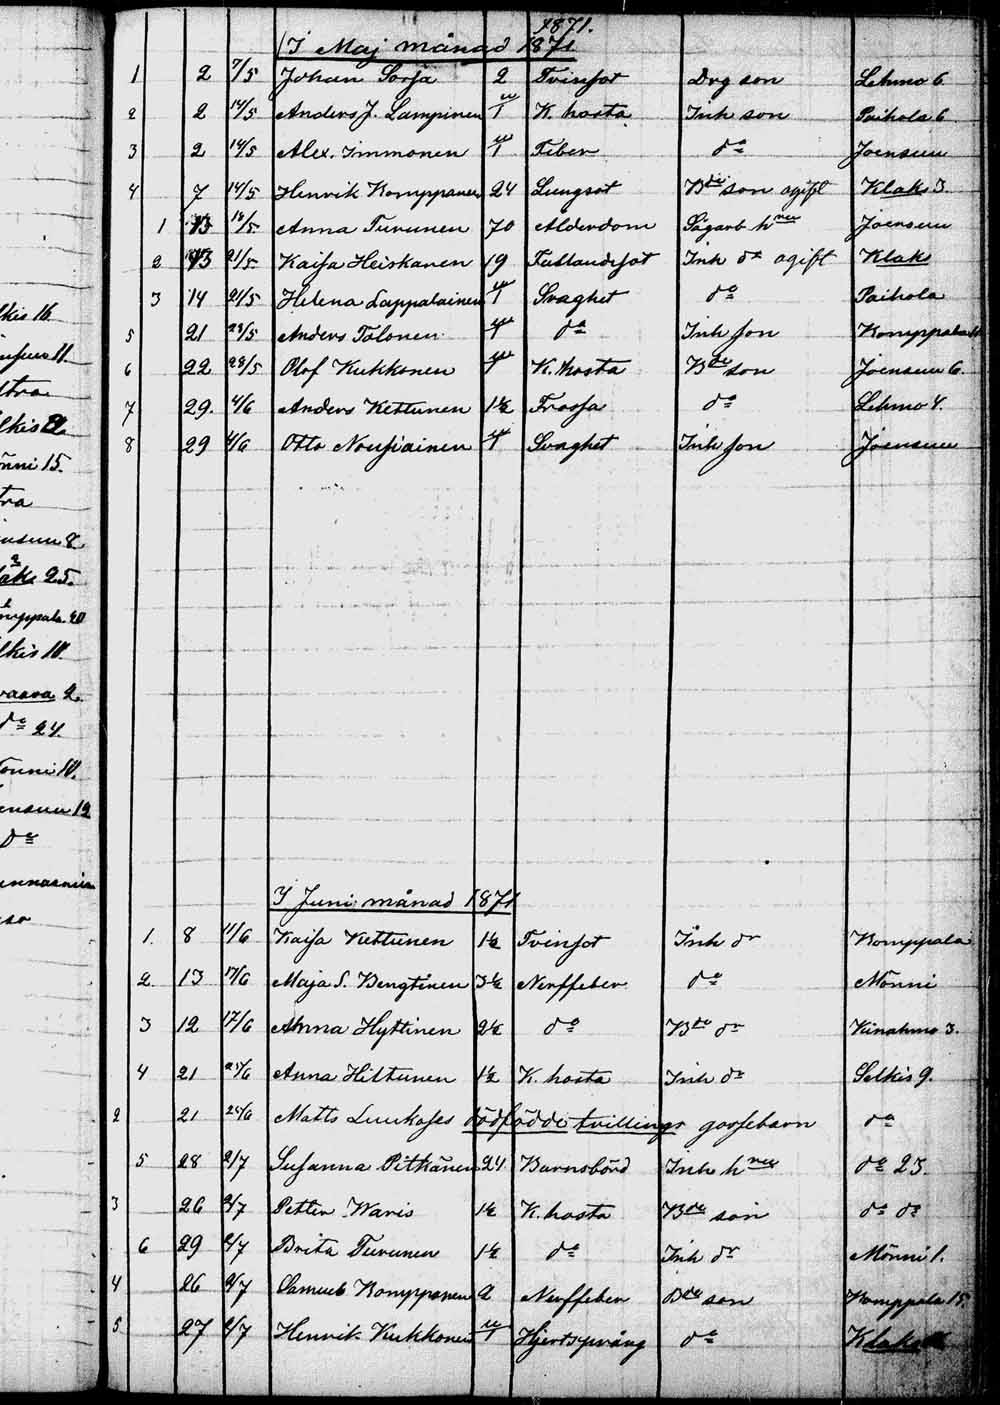 1871.
I Maj månad 1871
1 2 7/5 Johan Sorsa 2 Tvinsot Drg son Lehmo 6
2 2 14/5 Anders J. Lampinen K. hosta Inh son Paihola 6
3 2 14/5 Alex. Immonen Feber do Joensuu
4 7 14/5 Henrik Komppanen 24 Lungsot Bde son ogift Klaks 3
1 13 18/5 Anna Turunen 70 Ålderdom Sågarb hru Joensuu
2 13 21/5 Kaisa Heiskanen 19 Fallandesot Inh dr ogift Klaks
3 14 21/5 Helena Lappalainen Svaghet do Paihola
5 21 28/5 Anders Tolonen do Inh son Komppala
6 22 28/5 Olof Kukkonen K. hosta Bde son Joensuu 6
7 29. 4/6 Anders Kettunen 1½ Trossa do Lehmo 4.
8 29 4/6 Otto Nousiainen Svaghet Inh son Joensuu
I Juni månad 1871
1. 8 11/6 Kaisa Kettunen 1½ Tvinsot Inh dr Komppala
2. 13 17/6 Maja S. Bengtinen 3½ Nerffeber do Mönni
3 12 17/6 Anna Hyttinen 2½ do Bde dr Kinahmo 3.
4 21 25/6 Anna Hiltunen 1½ K. hosta Inh dr Selkis 9.
2 21 25/6 Matts Luukases dödfödde tvillings gossebarn do
5 28 2/7 Susanna Pitkänen 24 Barnsbörd Inh hru do 23.
3 26 2/7 Petter Waris 1½ K. hosta Bde son do do
6 29 2/7 Brita Turunen 1½ do Inh dr Mönni 1.
4 26 2/7 Samuel Komppanen 2 Nerffeber Bde son Komppala 15.
5 27 2/7 Henrik Kukkonen Hjertsprång do Klaks